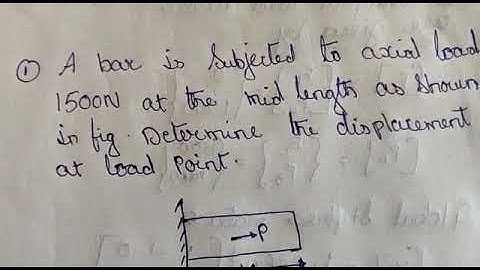 ① A bar is Subjected to axial load
1500N at the mid length as Shown
in fig. Determine the displacement
at load point.
P